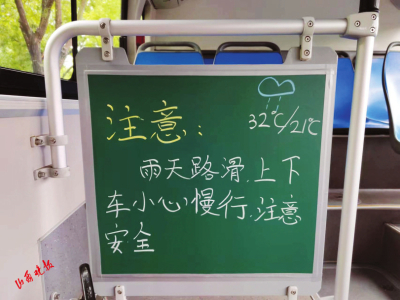 注意：
32℃/21℃
雨天路滑,上下
车小心慢行,注意
安全
山西晚报